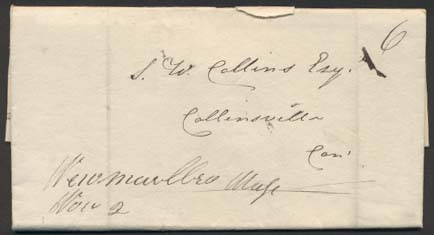 6
S. W. Collins Esq.
Collinsville
Con'
New Marlbro Mass
Nov 2